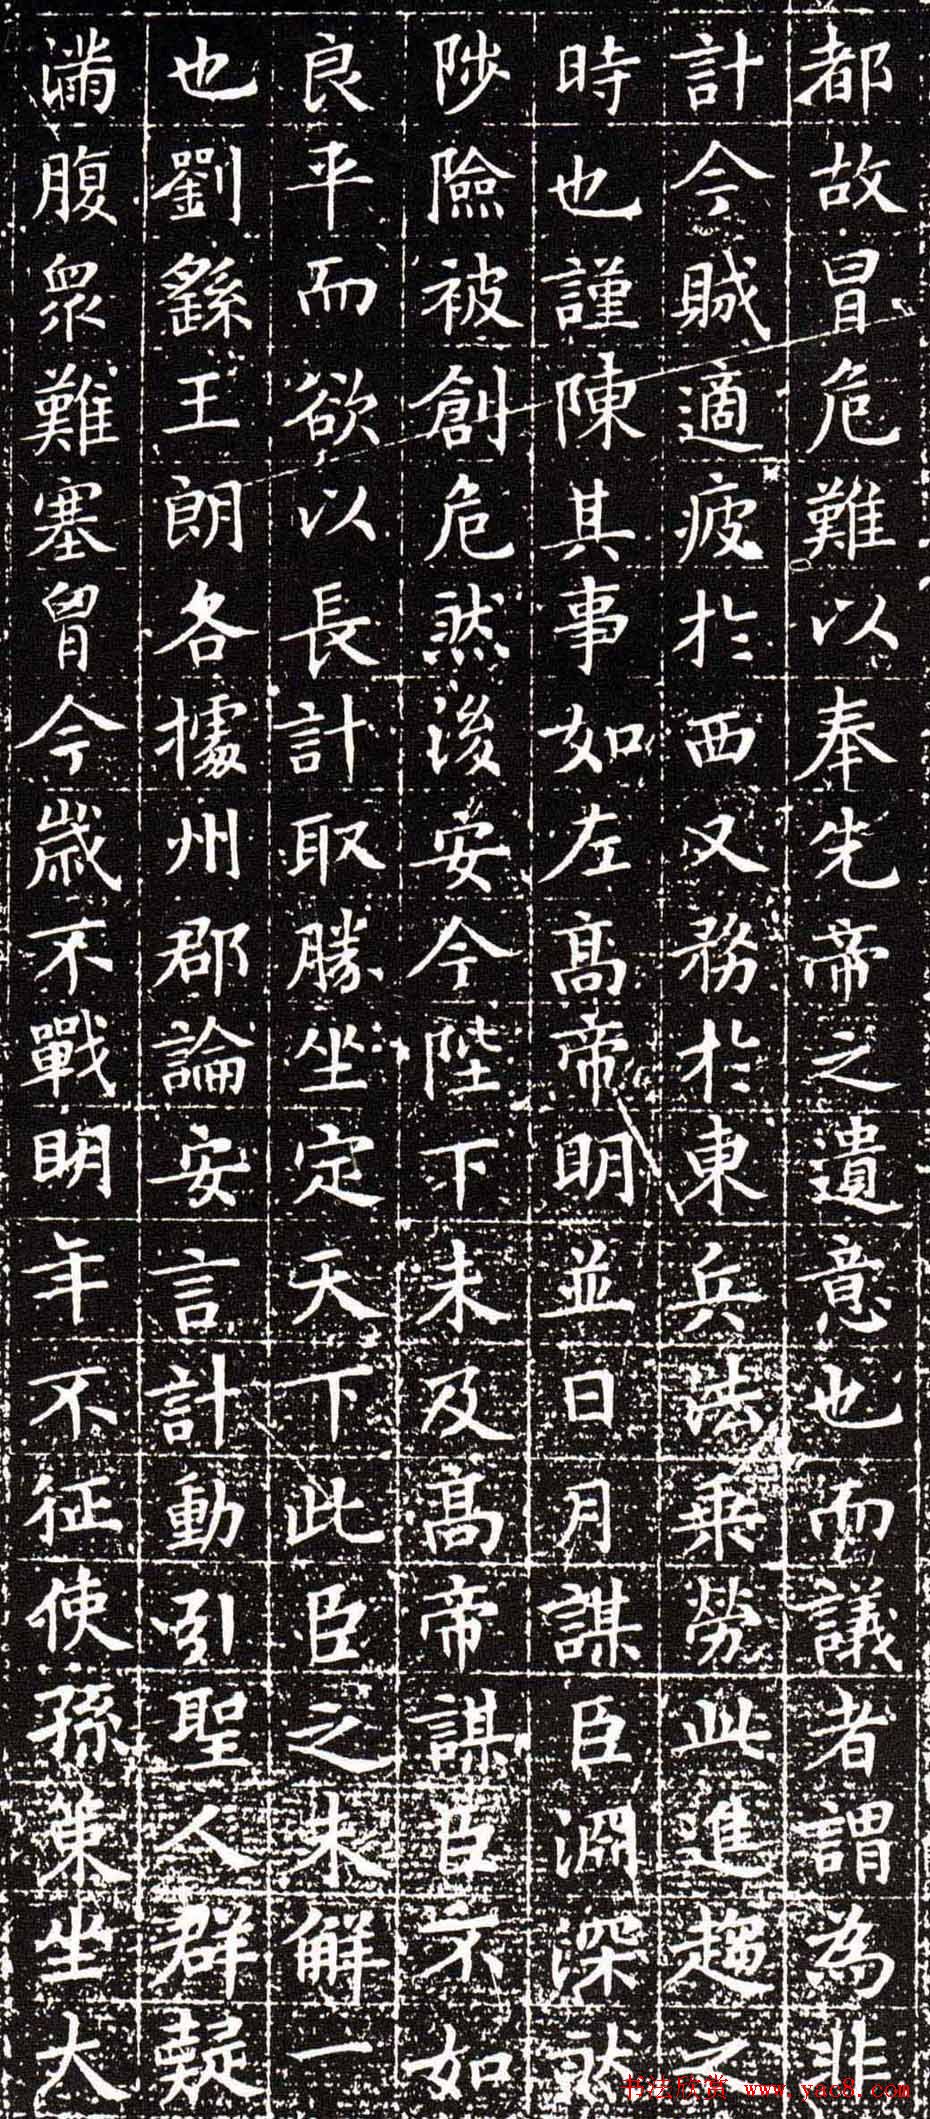 都故冒危難以奉先帝之遺意也而議者謂為非
計今賊適疲於西又務於東兵法乘勞此進趨之
時也謹陳其事如左髙帝明並日月謀臣淵深然
陟險被創危然後安今陛下未及髙帝謀臣不如
良平而欲以長計取勝坐定天下此臣之未解一
也劉繇王朗各據州郡論安言計動引聖人群疑
滿腹眾難塞胷今歲不戰明年不征使孫策坐大
书法欣赏 www.yac8.com